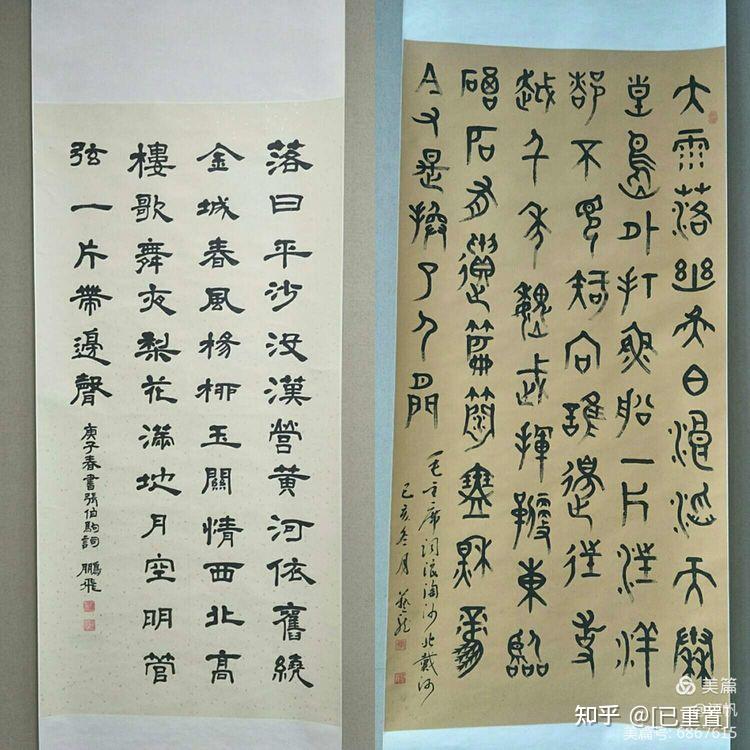 落日平沙没漢營黄河依舊繞
金城春風楊柳玉關情西北高
樓歌舞夜梨花滿地月空明管
弦一片帶邊聲
庚子春書張伯駒詞 鵬飛
大雨落幽燕白浪滔天秦
皇島外打魚船一片汪洋
都不見知向誰邊往事
越千年魏武揮鞭東臨
碣石有遺篇蕭瑟秋風
今又是換了人間
毛主席词浪淘沙北戴河
己亥冬月
美篇
知乎 @[已重置]
美篇号: 6867615